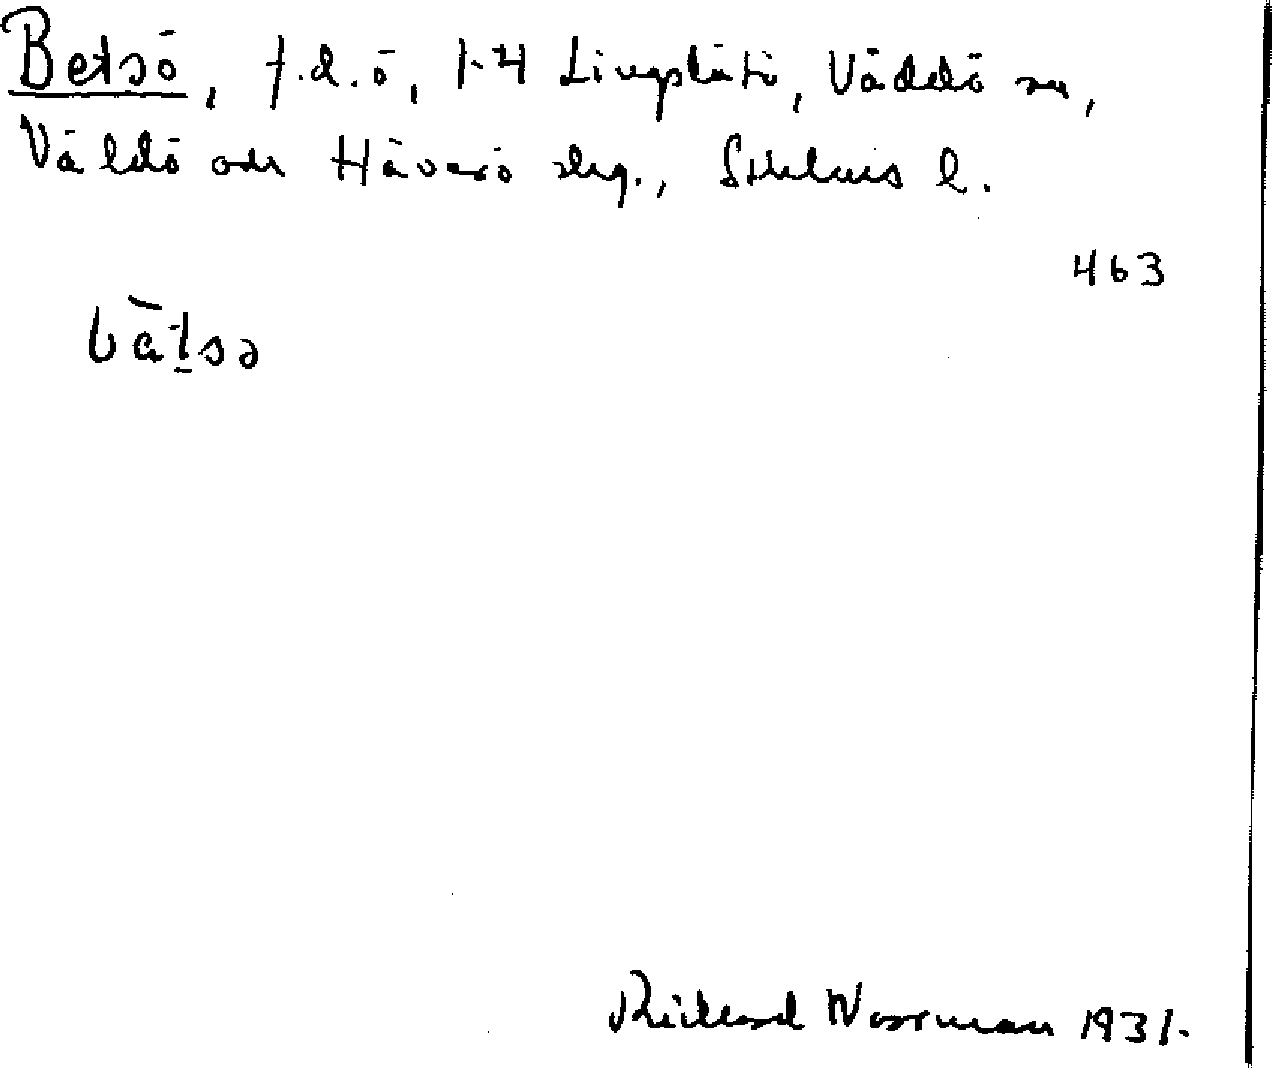 Betsö, f.d.ö, 1-4 Lingslätö, Väddö sn,
Väddö och Häverö skg., Sthlms l.
463
bä̀tsə
Richard Norrman 1931.